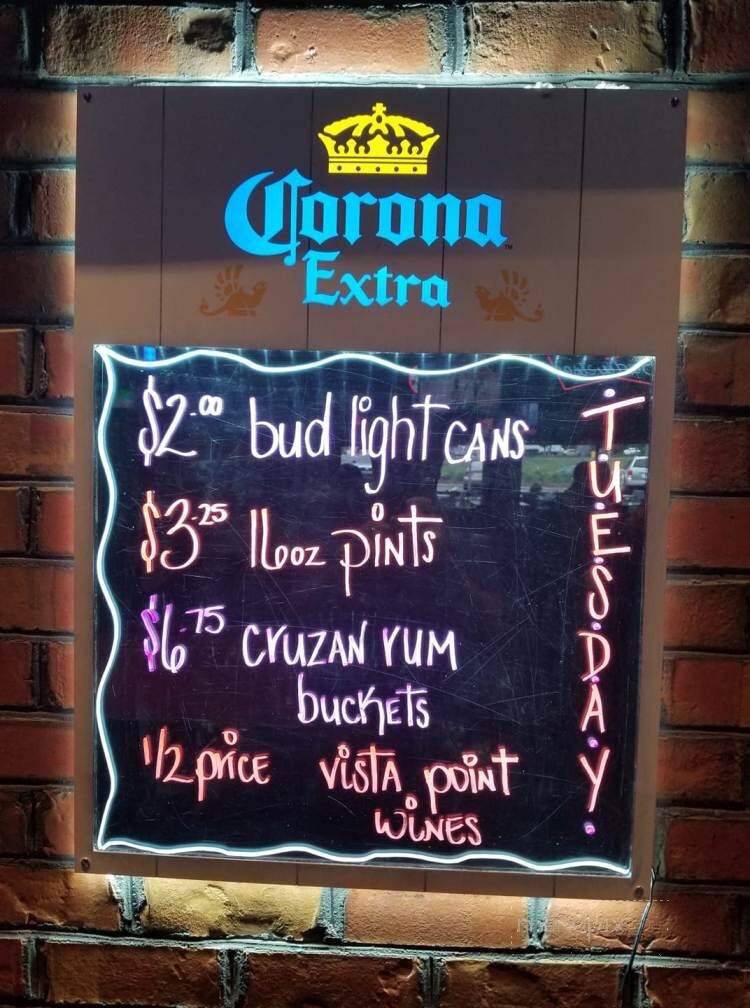 Corona
Extra
$2.00 bud light CANS
$3.25 16oz pints
$6.75 CRUZAN RUM
buckets
1/2 price vista point
wines
TUESDAY